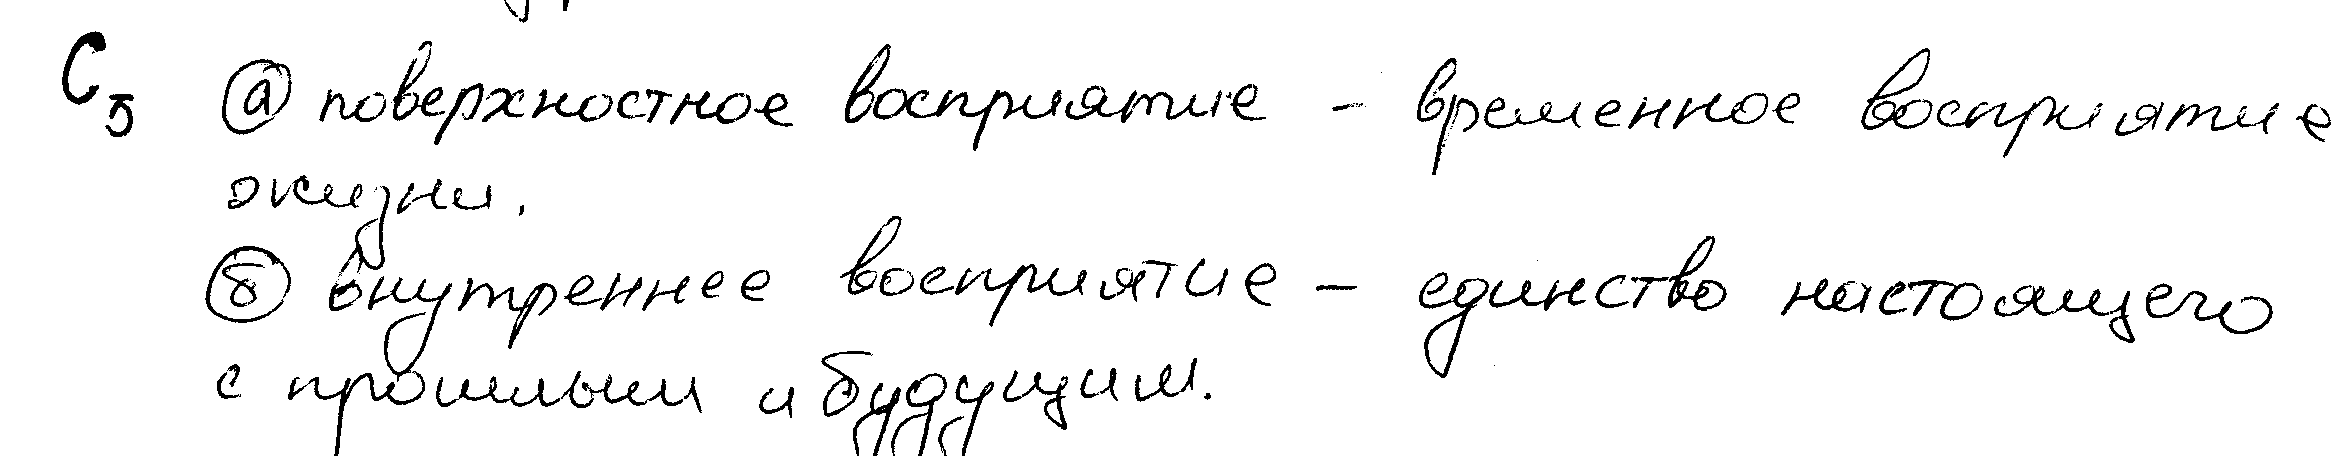 С5 а) поверхностное восприятие – временное восприятие
жизни.
б) внутреннее восприятие – единство настоящего
с прошлым и будущим.